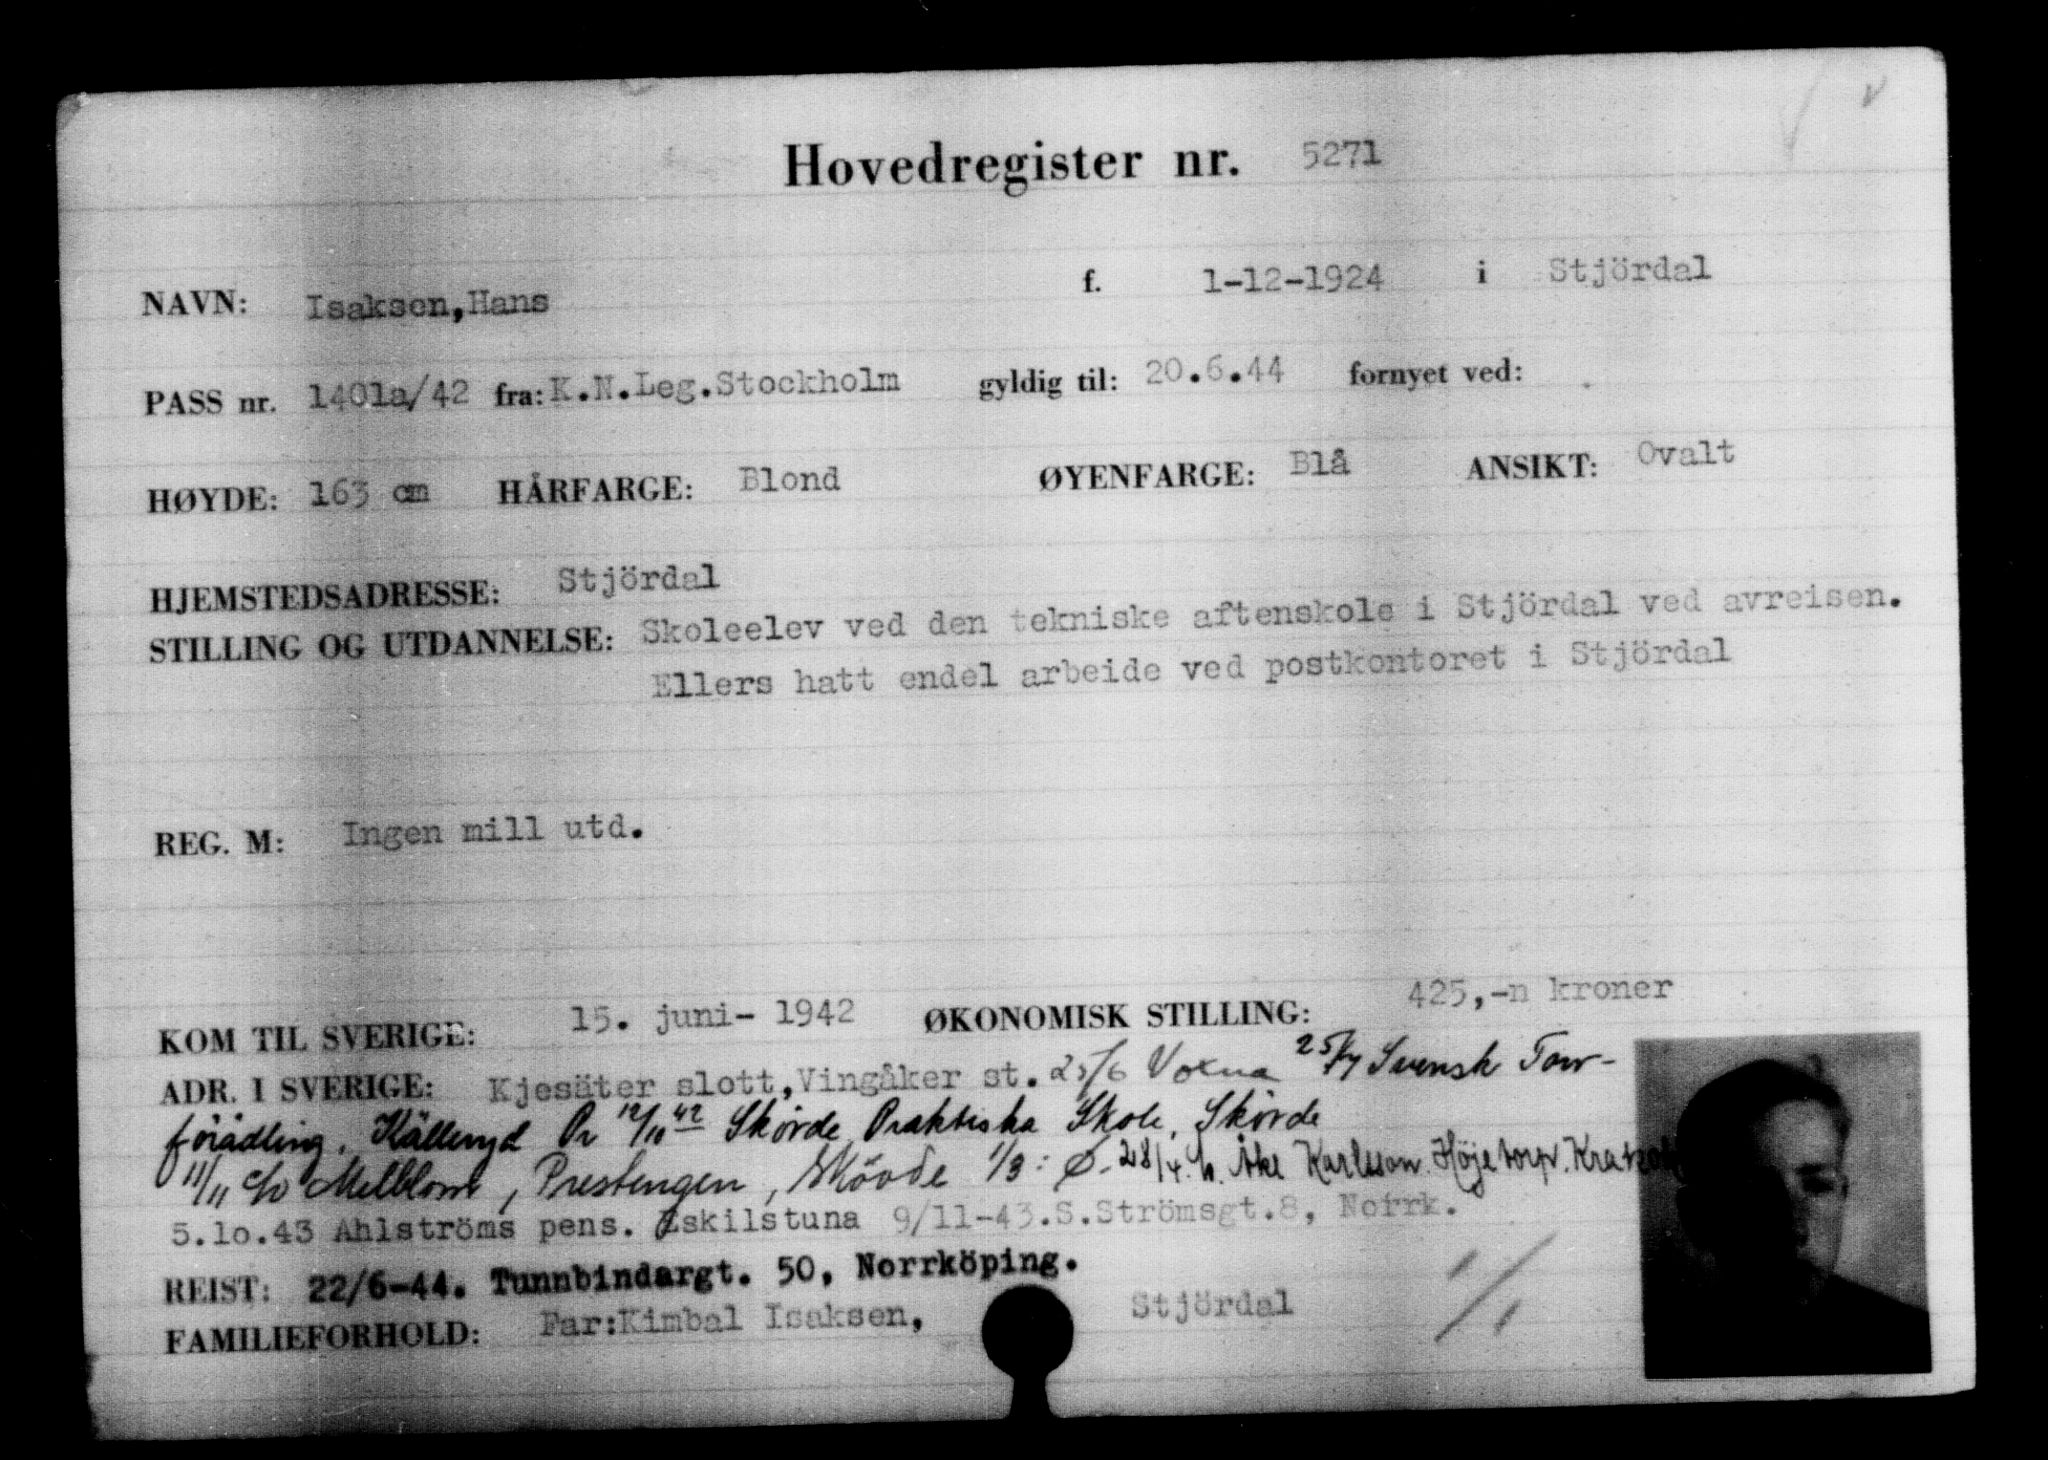 Hovedregister nr. 5271
NAVN: Isaksen,Hans f. 1-12-1924 i Stjördal
PASS nr. 1401a/42 fra: K.N.Leg.Stockholm gyldig til: 20.6.44 fornyet ved:
HØYDE: 163 cm HÅRFARGE: Blond ØYENFARGE: Blå ANSIKT: Ovalt
HJEMSTEDSADRESSE: Stjördal
STILLING OG UTDANNELSE: Skoleelev ved den tekniske aftenskole i Stjördal ved avreisen.
Ellers hatt endel arbeide ved postkontoret i Stjördal
REG. M: Ingen mill utd.
KOM TIL SVERIGE: 15. juni- 1942 ØKONOMISK STILLING: 425,-n kroner
ADR. I SVERIGE: Kjesäter slott,Vingåker st. 25/6 Voxna 25/7 Svensk Torv-
förädling, Källeryd Pr 12/10 42 Skövde Praktiska Skole, Skövde
11/11 c/o Mellblom, Prestengen, Skövde 1/3: Ø. 28/4. Åke Karlsson. Höjetorp.
5.10.43 Ahlströms pens. Eskilstuna 9/11-43.S.Strömsgt.8, Norrk.
REIST: 22/6-44. Tunnbindargt. 50, Norrköping.
FAMILIEFORHOLD: Far:Kimbal Isaksen, Stjördal